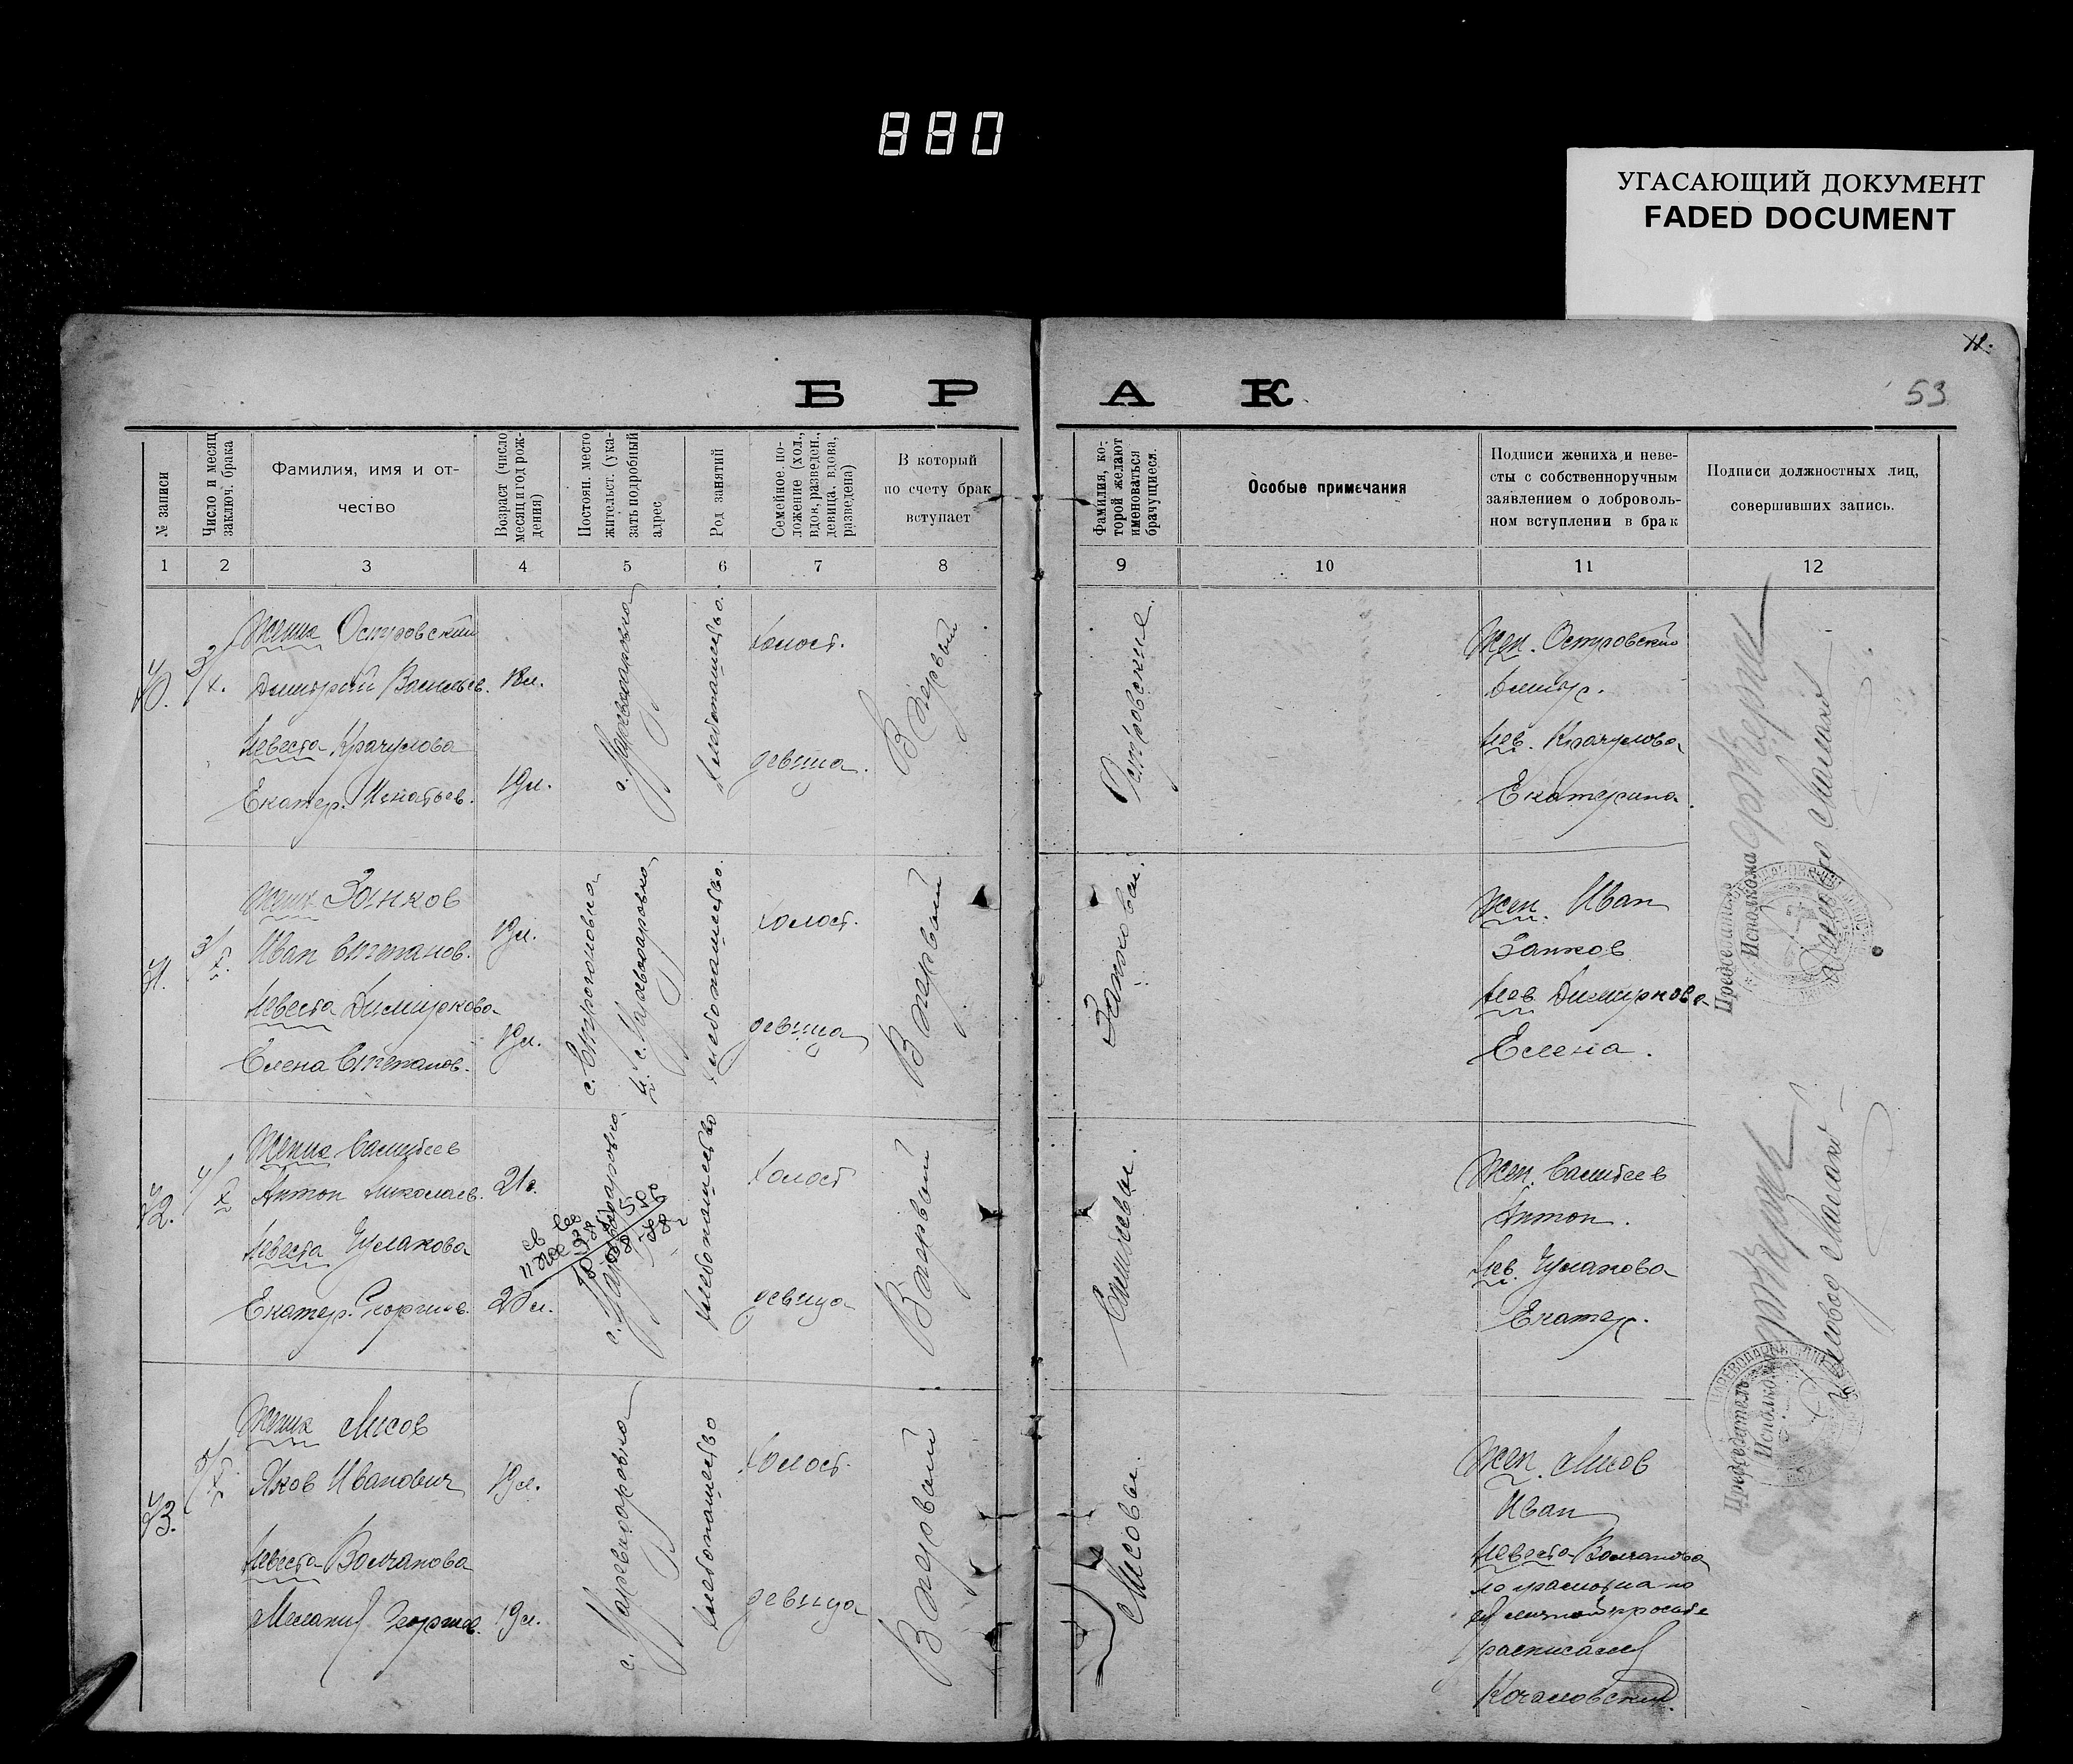 880
УГАСАЮЩИЙ ДОКУМЕНТ
FADED DOCUMENT
11.
53
БРАК
№ записи
Число и месяц
заключ. брака
Фамилия, имя и от-
чество
Возраст (число
месяц и год рож-
дения)
Постоян. место
жительст. (ука-
зать подробный
адрес
Род занятий
Семейное по-
ложение (хол.,
вдов, разведен.,
девица, вдова,
разведена)
В который
по счету брак
вступает
Фамилия, ко-
торой желают
именоваться
брачущиеся.
Особые примечания
Подписи жениха и неве-
сты с собственноручным
заявлением о доброволь-
ном вступлении в брак
Подписи должностных лиц,
совершивших запись.
1 2 3 4 5 6 7 8 9 10 11 12
40.
3/X.
Жених Островский
Димитрий Васильев. 18 л.
Невеста Крачулова
Екатер. Игнатьев. 19 л.
с. Царевдаровка
Хлебопашество.
Холост.
девица.
В первый
Островские.
Жен. Островский
Димитр.
Нев. Крачулова
Екатерина.
41.
3/X.
Жених Занков
Иван Степанов. 19 л.
Невеста Димиркова
Елена Степанов. 19 л.
с. Царевдаровка
Хлебопашество.
Холост.
девица
В первый
Занковы.
Жен. Иван
Занков
Нев. Димиркова
Елена.
Председатель
Исполкома
42.
4/X
Жених
Антон Николаев. 21 г.
Невеста Чулакова
Екатер. Георгиев. 20 л.
с. Царевдаровка
Хлебопашество
Холост
девица
В первый
Жен.
Антон.
Нев. Чулакова
Екатер.
43.
5/X
Жених Лисов
Яков Иванович 19 л.
Невеста Волчанова
Мелания Георгиев. 19 л.
с. Царевдаровка
Хлебопашество
Холост.
девица
В первый
Лисовы.
Жен. Лисов
Иван
Невеста Волчанова
не грамотна по
её личной просьбе
расписался
Качаловский
Председатель
Исполкома